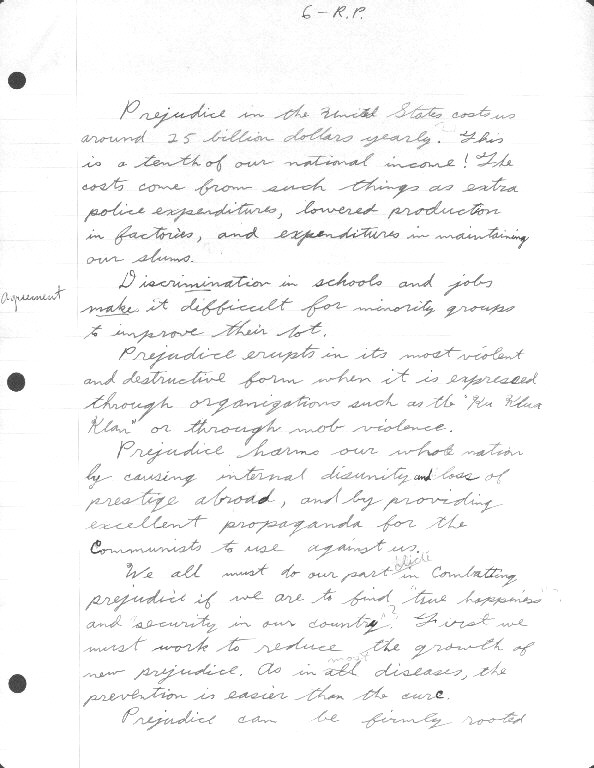 6 - R.P.
Prejudice in the United States costs us
around 25 billion dollars yearly. This
is a tenth of our national income! The
costs come from such things as extra
police expenditures, lowered production
in factories, and expenditures in maintaining
our slums.
Discrimination in schools and jobs
Agreement
make it difficult for minority groups
to improve their lot.
Prejudice erupts in its most violent
and destructive form when it is expressed
through organizations such as the "Ku Klux
Klan" or through mob violence.
Prejudice harms our whole nation
by causing internal disunity and loss of
prestige abroad, and by providing
excellent propaganda for the
Communists to use against us.
We all must do our part in Combatting
prejudice if we are to find "true happiness
and security in our country". First we
must work to reduce the growth of
new prejudice. As in all diseases, the
most
prevention is easier than the cure.
Prejudice can be firmly rooted